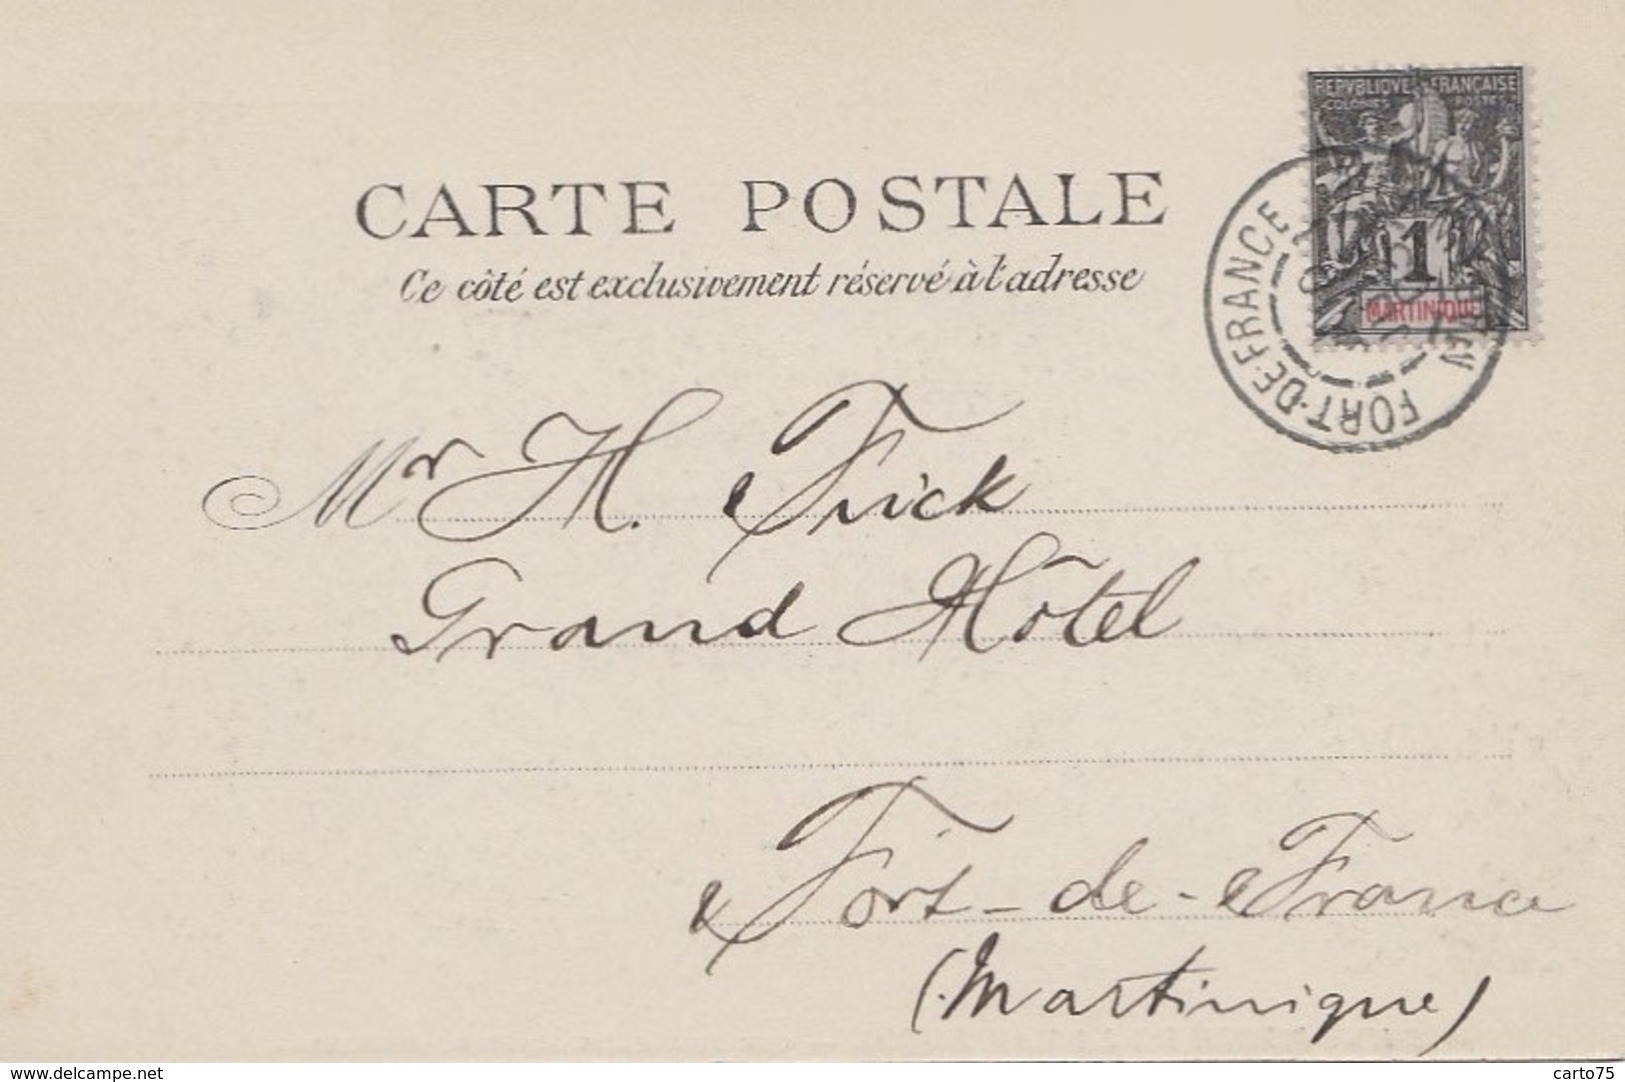 REPVBLIQVE FRANÇAISE
COLONIES POSTES
1
MARTINIQUE
FORT-DE-FRANCE
CARTE POSTALE
Ce côté est exclusivement réservé à l'adresse
Mr H. Frick
Grand Hôtel
Fort-de-France
(Martinique)
www.delcampe.net
carto75